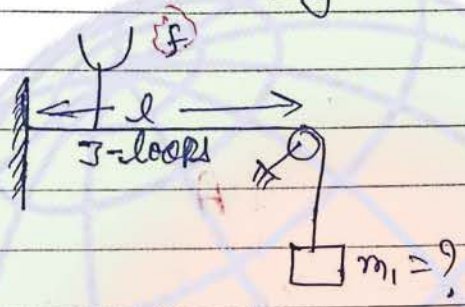 f
l
3-loops
m₁ = ?